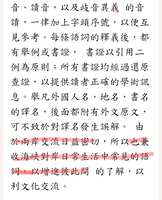 音、讀音,以及歧音異義 的音
讀,一律加上字頭序號,以便互
見參考。每條詞語的釋義後,都
有舉例或書證, 書證以引用二
例為原則。所有書證均經過還原
查證,以提供讀者正確的學術訊
息。舉凡外國人名、地名、書名
的譯名,後面都附有外文原文,
可不致於對譯名發生誤解。 由
於兩岸交流日益密切,所以也兼
收海峽對岸日常生活中常見的語
詞,以增進彼此間 的了解,以
利文化交流。